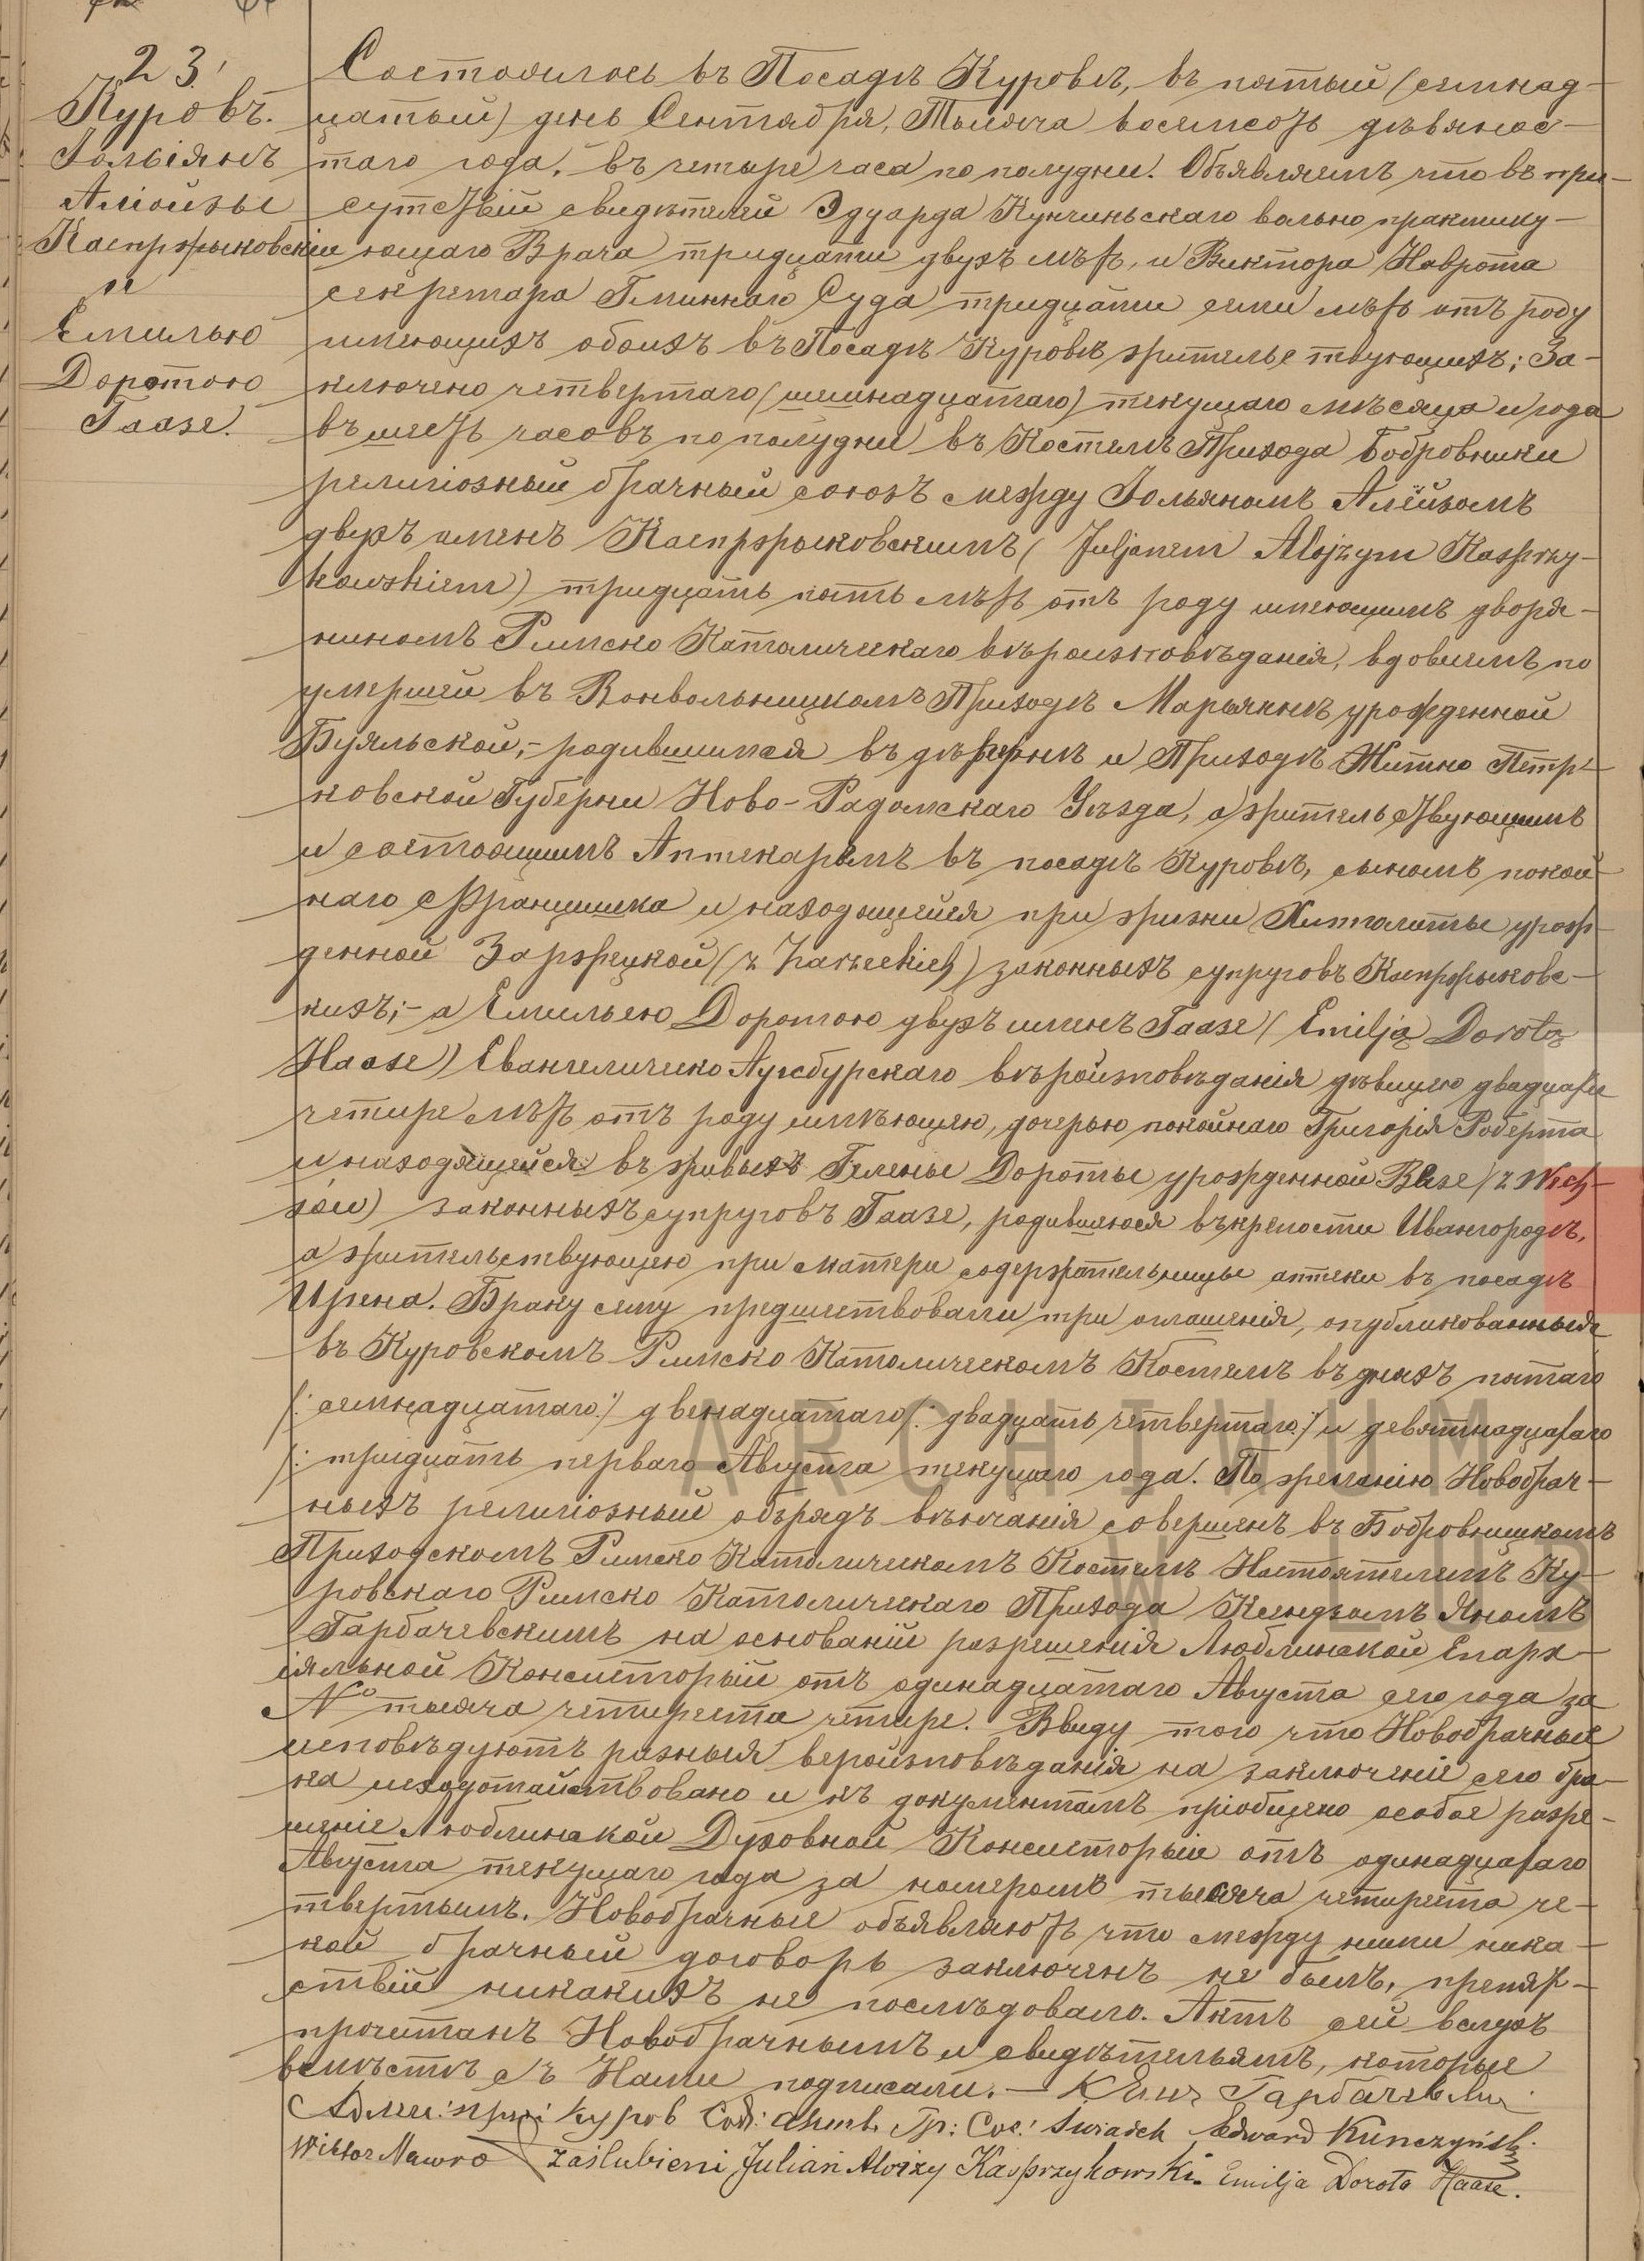 23
Куровъ.
Юльіянъ
Алюйзы
Каспржыковскій
и
Емилью
Доротою
Гаазе.
Состоялось въ Посадѣ Куровѣ, въ пятый (семнад-
цатый) день Сентября, Тысяча восемсотъ девянос-
таго года, въ четыре часа по полудни. Объявляемъ что въ при-
сутствіи свидѣтелей Эдуарда Кунчиньскаго вольно практику-
ющаго Врача тридцати двухъ лѣтъ, и Виктора Наврота
секретара Гминнаго Суда тридцати семи лѣтъ отъ роду
имеющихъ обоихъ въ Посадѣ Куровѣ жительствующихъ; За-
ключено четвертаго (шешнадцатаго) текущаго мѣсяца и года
въ шесть часовъ по полудни въ Костелѣ Прихода Бобровники
религіозный брачный союзъ между Юльяномъ Алёйзомъ
двухъ именъ Каспржыковскимъ (Juljanem Alojzym Kasprzy-
kowskiem) тридцать пять лѣтъ отъ роду имеющимъ дворя-
ниномъ Римско Католическаго вѣроисповѣданія, вдовцемъ по
умершей въ Вонвольницкомъ Приходѣ Марьяннѣ урожденной
Буяльской,- родившимся въ деревнѣ и Приходѣ Житно Петр-
ковской Губерни Ново-Радомскаго Уѣзда, а жительствующимъ
и состоящимъ Аптекарѣмъ въ посадѣ Куровѣ, сыномъ покой-
наго Францишка и находящейся при жизни Хипполиты урож-
денной Заржецкой (z Zarzeckich) законныхъ супруговъ Каспржыковс-
кихъ;- а Емильею Доротою двухъ именъ Гаазе (Emilją Dorotą
Haase) Евангелическо Аугсбурскаго вѣроисповѣданія дѣвицею двадцати
четыре лѣтъ отъ роду имѣющею, дочерью покойнаго Григорія Роберта
и находящейся въ живыхъ Гелены Дороты урожденной
законныхъ супруговъ Гаазе, родившеюся въ крепости Ивангородѣ,
а жительствующею при матери содержательницы аптеки въ посадѣ
Ирена. Браку сему предшествовали три оглашенія, опубликованныя
въ Куровскомъ Римско Католическомъ Костелѣ въ дняхъ пятаго
/: семнадцатаго :/ двенадцатаго /: двадцать четвертаго :/ и девятнадцатаго
/: тридцать перваго Августа текущаго года. По желанію Новобрач-
ныхъ религіозный обрядъ вѣнчанія совершенъ въ Бобровницкомъ
Приходскомъ Римско Католическомъ Костелѣ Настоятелемъ Ку-
ровскаго Римско Католическаго Прихода Ксендзомъ Яномъ
Гарбачевскимъ на основаніи разрешенія Люблинской Епарх-
іяльной Консисторіи отъ одинадцатаго Августа сего года за
№ тысяча четыреста четыре. Ввиду того что Новобрачные
исповѣдуютъ разныя вероисповѣданія на заключеніе сего бра-
ка исходотайствовано и къ документамъ пріобщено особое разре-
шеніе Люблинской Духовной Консисторіи отъ одинадцатаго
Августа текущаго года за номеромъ тысяча четыреста че-
твертымъ. Новобрачные объявляютъ что между ними ника-
кой брачный договоръ заключенъ не былъ, препят-
ствій никакихъ не послѣдовало. Актъ сей вслухъ
прочитанъ Новобрачнымъ и свидѣтельямъ, которые
вмѣстѣ съ Нами подписали. — К Янъ Гарбачевски
Куров Гр: Сос: Świadek Edward Kunczyński.
Wiktor Nawro Zaślubieni Julian Aloizy Kasprzykowski. Emilja Dorota Haase.
ARCHIWUM
W LUB